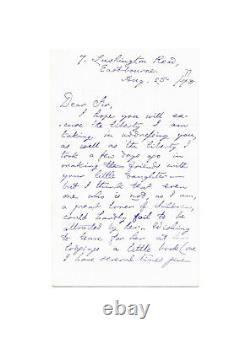 7, Lushington Road,
Eastbourne.
Aug. 25
Dear Sir,
I hope you will ex-
cuse the liberty I am
taking in addressing you,
as well as the liberty I
took a few days ago in
making them friends with
your little daughter—
but I think that even
one who is not, as I am,
a great lover of children,
could hardly fail to be
attracted by her. Wishing
to leave for her at her
lodgings a little book (one
I have several times given
© ebay